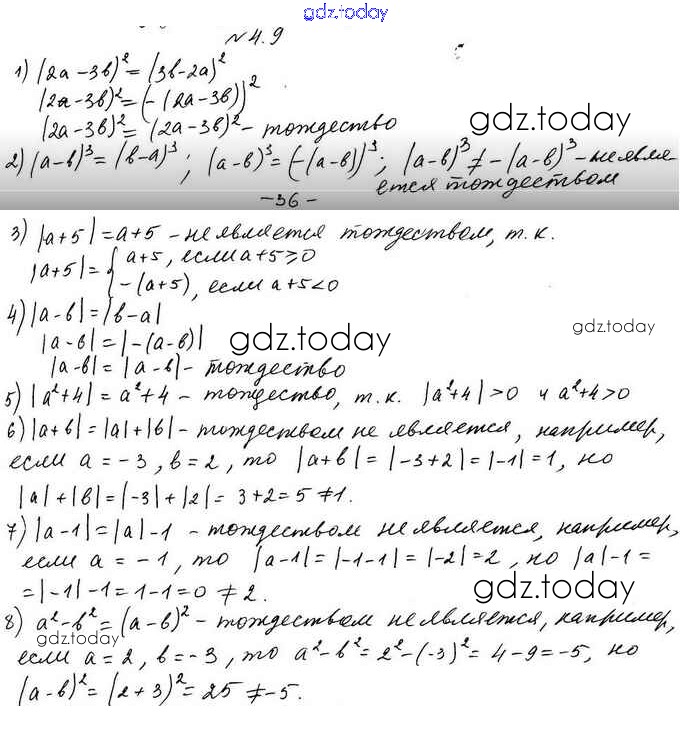 gdz.today
№4.9
1) (2a-3b)² = (3b-2a)²
(2a-3b)² = (-(2a-3b))²
(2a-3b)² = (2a-3b)² - тождество
gdz.today
2) (a-b)³ = (b-a)³; (a-b)³ = (-(a-b))³; (a-b)³ ≠ -(a-b)³ - не явля-
ется тождеством
-36-
3) |a+5| = a+5 - не является тождеством, т.к.
|a+5| = { a+5, если a+5≥0
-(a+5), если a+5<0
4) |a-b| = |b-a|
gdz.today
|a-b| = |-(a-b)|
gdz.today
|a-b| = |a-b| - тождество
5) |a²+4| = a²+4 - тождество, т.к. |a²+4|>0 и a²+4>0
6) |a+b| = |a|+|b| - тождеством не является, например,
если a = -3, b = 2, то |a+b| = |-3+2| = |-1| = 1, но
|a|+|b| = |-3|+|2| = 3+2 = 5 ≠ 1.
7) |a-1| = |a|-1 - тождеством не является, например,
если a = -1, то |a-1| = |-1-1| = |-2| = 2, но |a|-1 =
= |-1|-1 = 1-1 = 0 ≠ 2.
gdz.today
8) a²-b² = (a-b)² - тождеством не является, например,
gdz.today
если a = 2, b = -3, то a²-b² = 2²-(-3)² = 4-9 = -5, но
(a-b)² = (2+3)² = 25 ≠ -5.